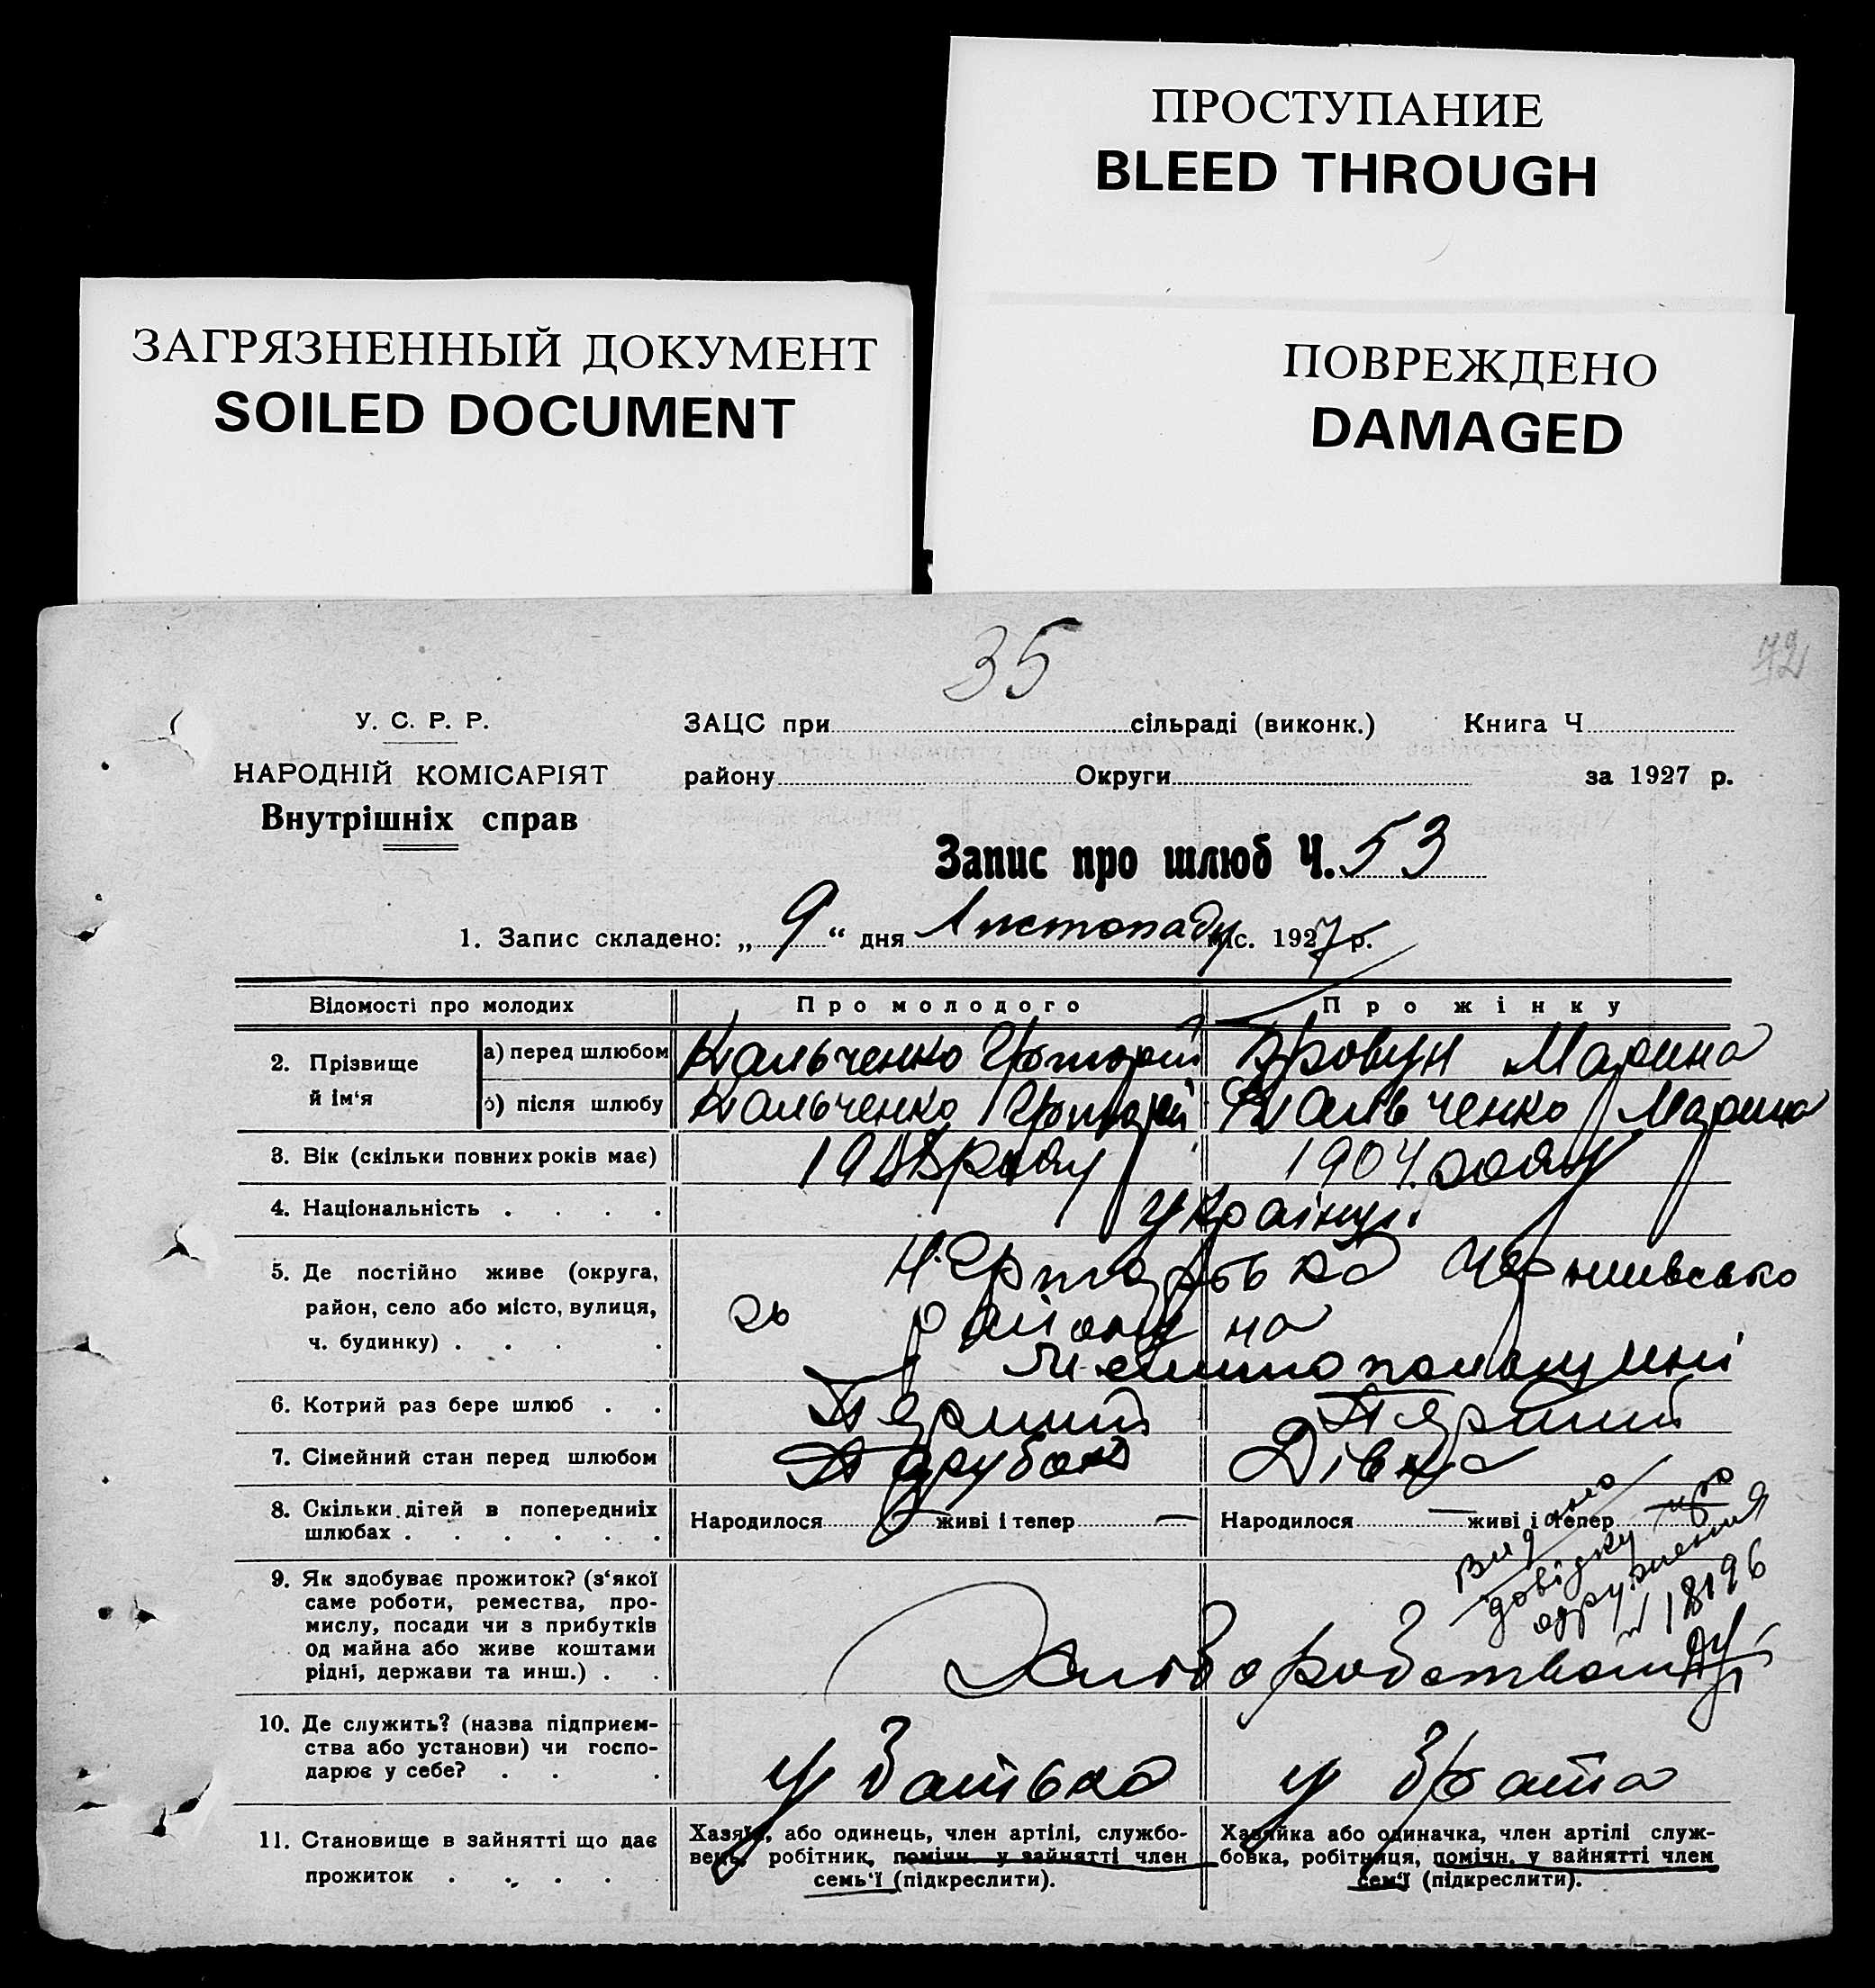 ПРОСТУПАНИЕ
BLEED THROUGH
ЗАГРЯЗНЕННЫЙ ДОКУМЕНТ
SOILED DOCUMENT
ПОВРЕЖДЕНО
DAMAGED
35
72
У. С. Р. Р.
НАРОДНІЙ КОМІСАРІЯТ
Внутрішніх справ
ЗАЦС при сільраді (виконк.) Книга Ч
району Округи за 1927 р.
Запис про шлюб Ч. 53
1. Запис складено: „ 9 “ дня Листопаду міс. 1927 р.
Відомості про молодих Про молодого Про жінку
2. Прізвище й ім‘я
а) перед шлюбом Кальченко Григорій Бровун Марина
б) після шлюбу Кальченко Григорій Кальченко Марина
3. Вік (скільки повних років має) року 1904 року
4. Національність . . . . Українці
5. Де постійно живе (округа, Чернишевсько
район, село або місто, вулиця, го району на
ч. будинку) . . . . Мелітопольщині
6. Котрий раз бере шлюб . . Перший Перший
7. Сімейний стан перед шлюбом Парубок Дівка
8. Скільки дітей в попередніх
шлюбах . . . . . .
Народилося — живі і тепер —
Народилося — живі і тепер —
Видано
довідку про
одруження
18196
9. Як здобуває прожиток? (з‘якої
саме роботи, ремества, про-
мислу, посади чи з прибутків
од майна або живе коштами
рідні, держави та инш.) . .
Хліборобством
10. Де служить? (назва підприєм-
ства або установи) чи госпо-
дарює у себе? . . .
у батька у брата
11. Становище в зайнятті що дає
прожиток . . . . .
Хазяїн, або одинець, член артілі, службо-
вець, робітник, помічн. у зайнятті член
семь‘ї (підкреслити).
Хазяйка або одиначка, член артілі служ-
бовка, робітниця, помічн. у зайнятті член
сем‘ї (підкреслити).